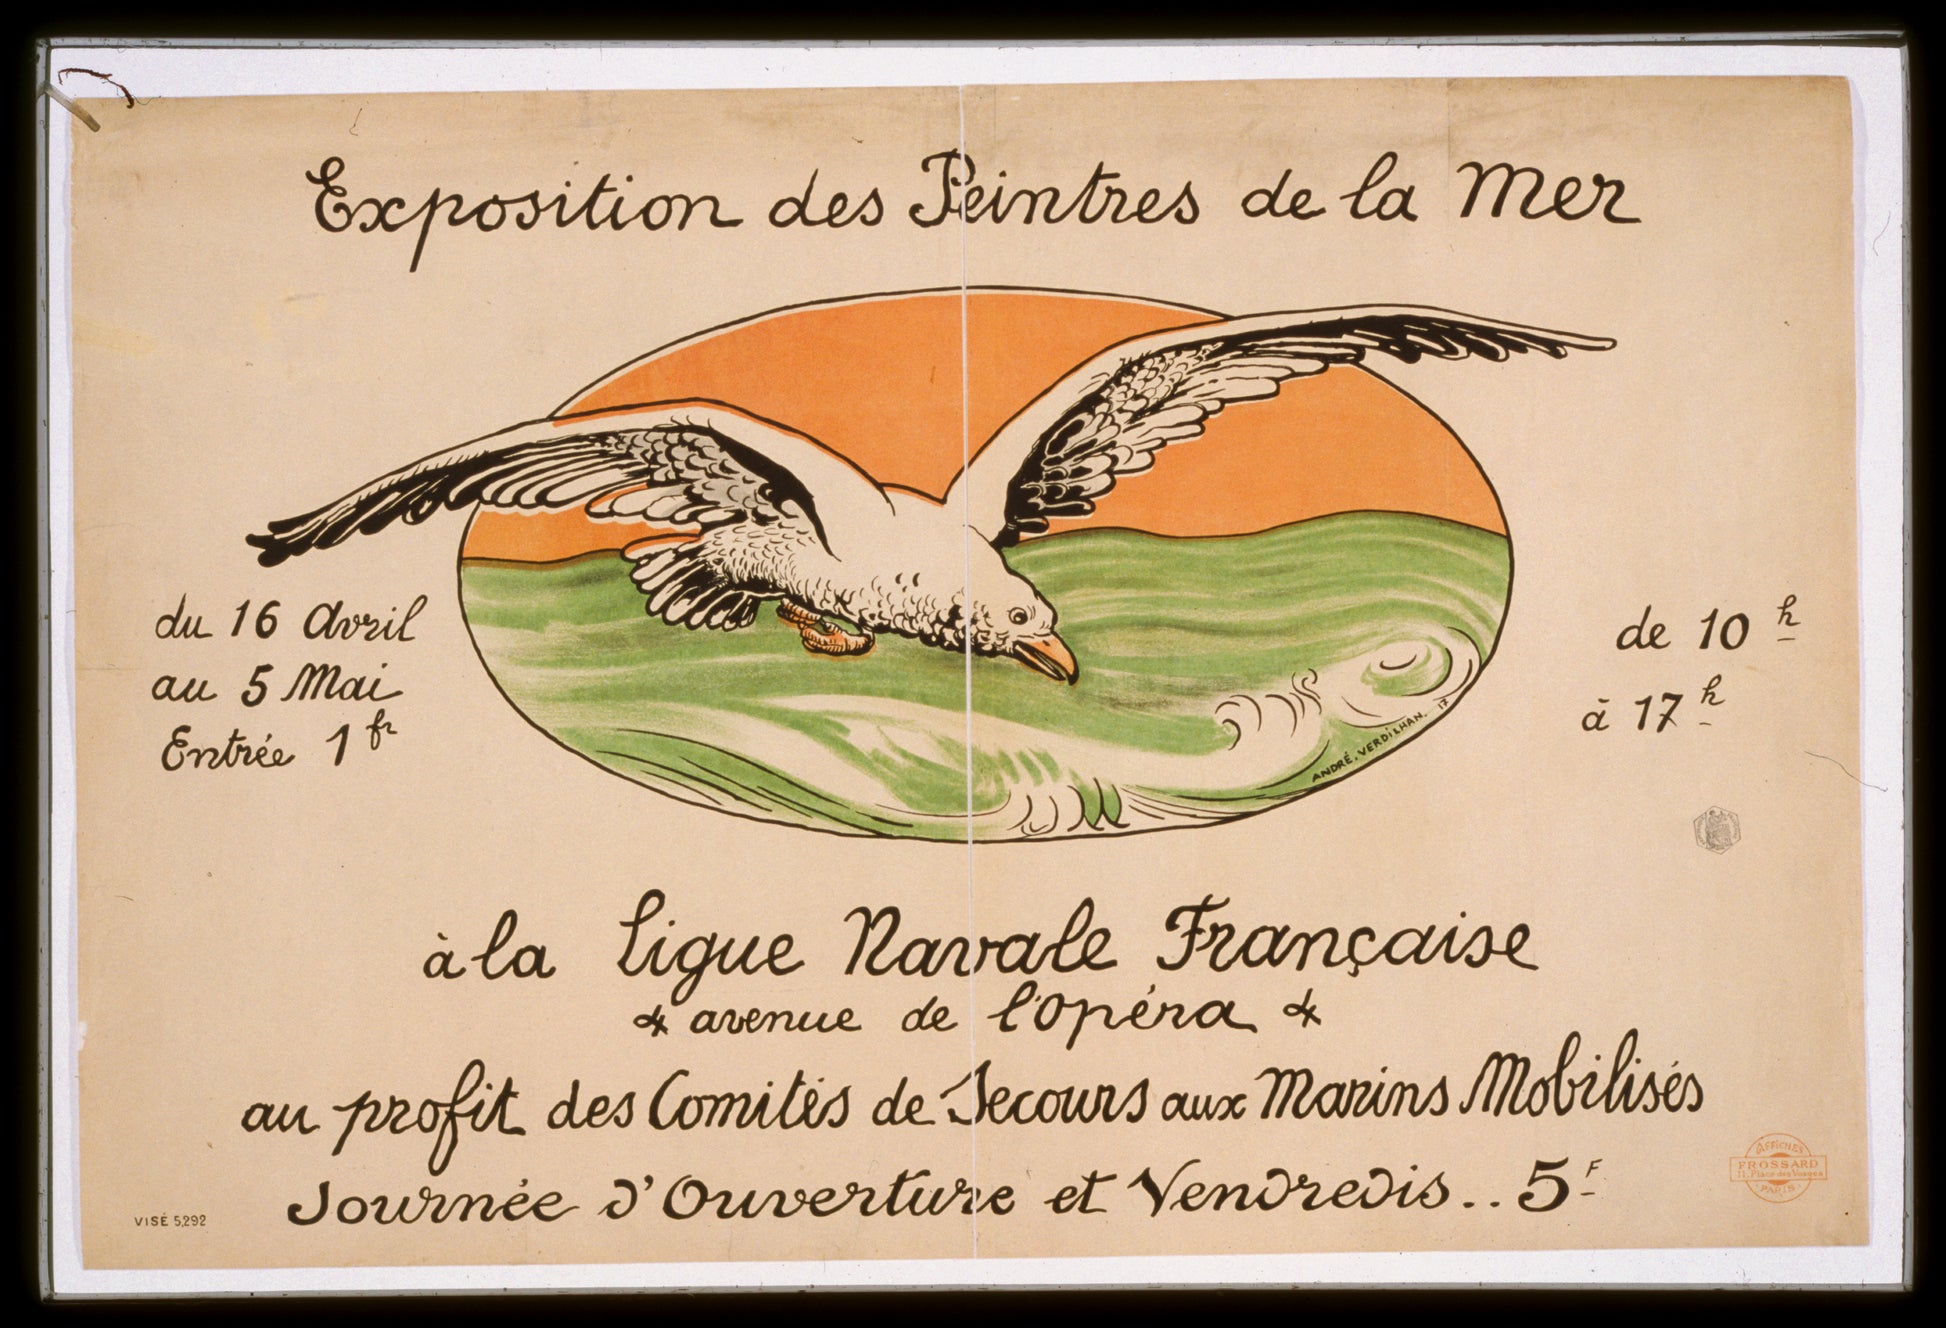 Exposition des Peintres de la Mer
du 16 Avril
au 5 Mai
Entrée 1 fr
de 10 h
à 17 h
ANDRÉ. VERDILHAN. 17
à la Ligue Navale Française
avenue de l'opéra
au profit des Comités de Secours aux Marins Mobilisés
Journée d'Ouverture et Vendredis.. 5 F
VISÉ 5.292
AFFICHES
FROSSARD
11, Place des Vosges
PARIS